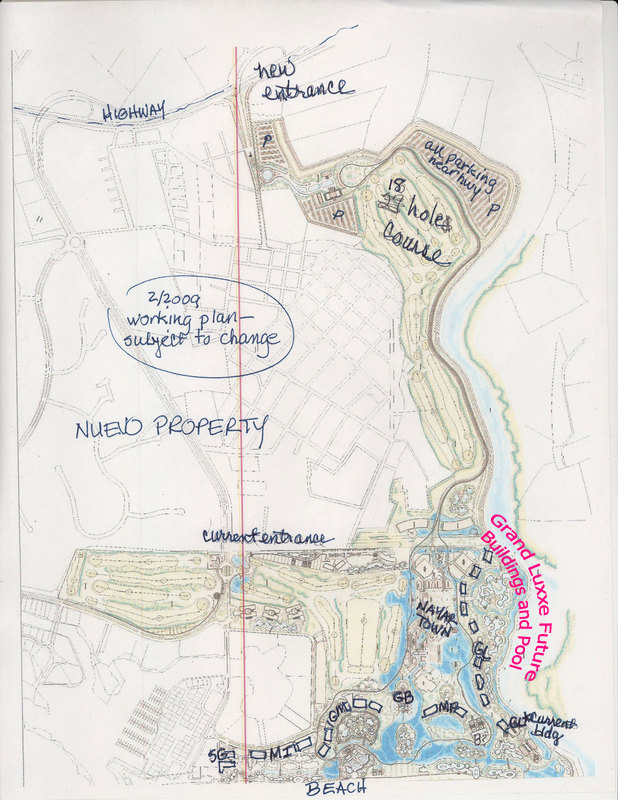 new
entrance
HIGHWAY
P
all parking
near hwy
P
P
18
holes
course
2/2009
working plan—
subject to change
NUEVO PROPERTY
current entrance
Grand Luxxe Future
Buildings and Pool
NAYAR
TOWN
GL
GM
GB
MP
current
bldg
SG
MI
BEACH